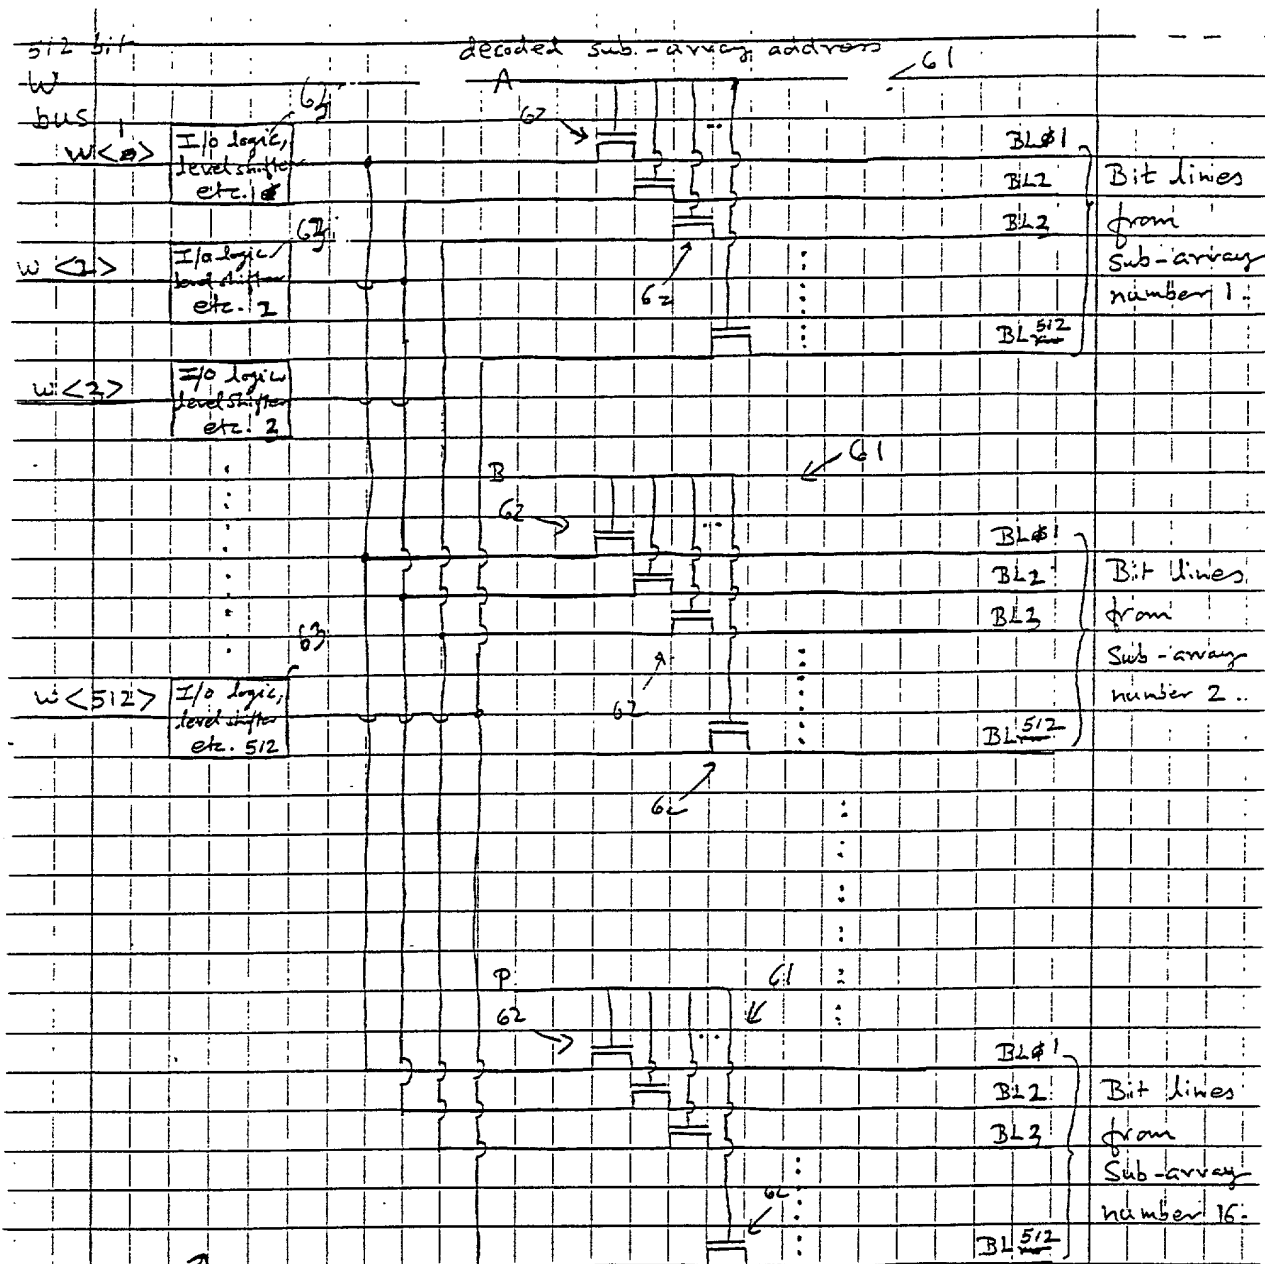 512 bit
W
bus
decoded sub-array address
A
61
63
62
W<1>
I/O logic,
level shifter
etc. 1
BL1
BL2
BL2
Bit lines
from
Sub-array
number 1.
63
W<2>
I/O logic
level shifter
etc. 2
62
BL512
W<2>
I/O logic
level shifter
etc. 2
B
61
62
BL1
BL2
BL3
Bit lines
from
Sub-array
number 2..
63
W<512>
I/O logic,
level shifter
etc. 512
62
BL512
62
P
61
62
BL1
BL2
BL3
Bit lines
from
Sub-array
number 16.
62
BL512